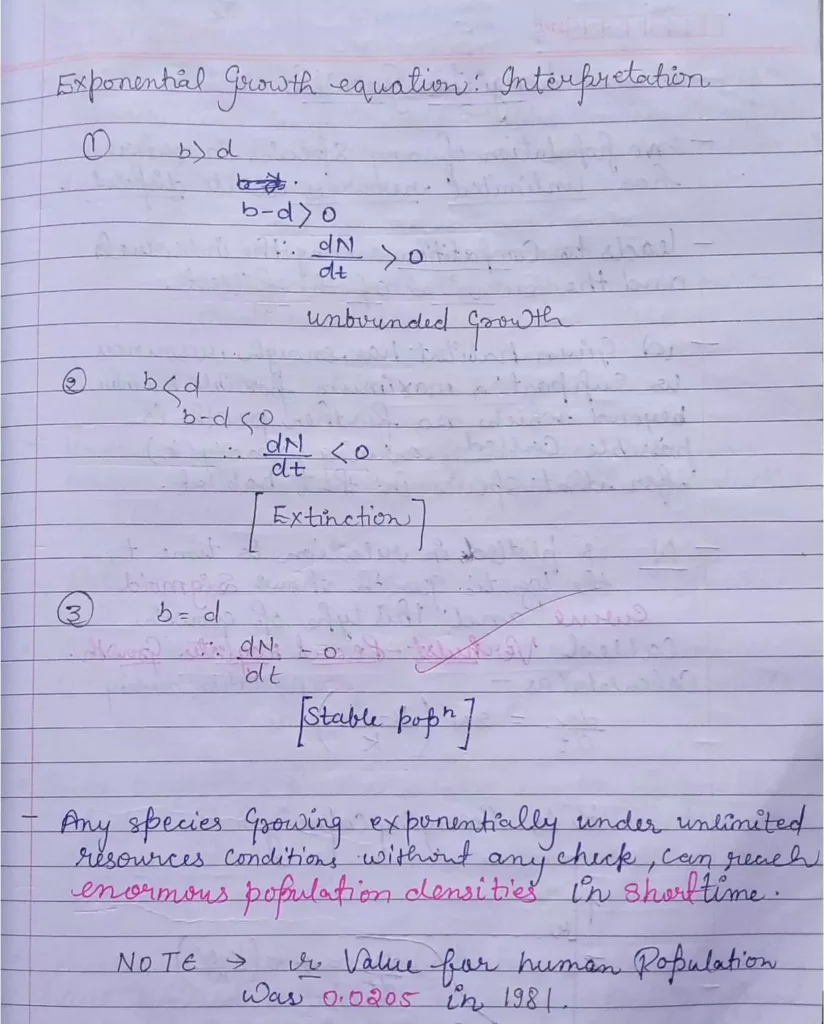 Exponential Growth equation: Interpretation
① b> d
b-d> 0
∴ dN/dt > 0
unbounded Growth
② b<d
b-d <0
∴ dN/dt < 0
[Extinction]
③ b= d
∴ dN/dt = 0
[Stable popⁿ]
- Any species Growing exponentially under unlimited
resources conditions without any check, can reach
enormous population densities in short time.
NOTE → r Value for human Population
was 0.0205 in 1981.